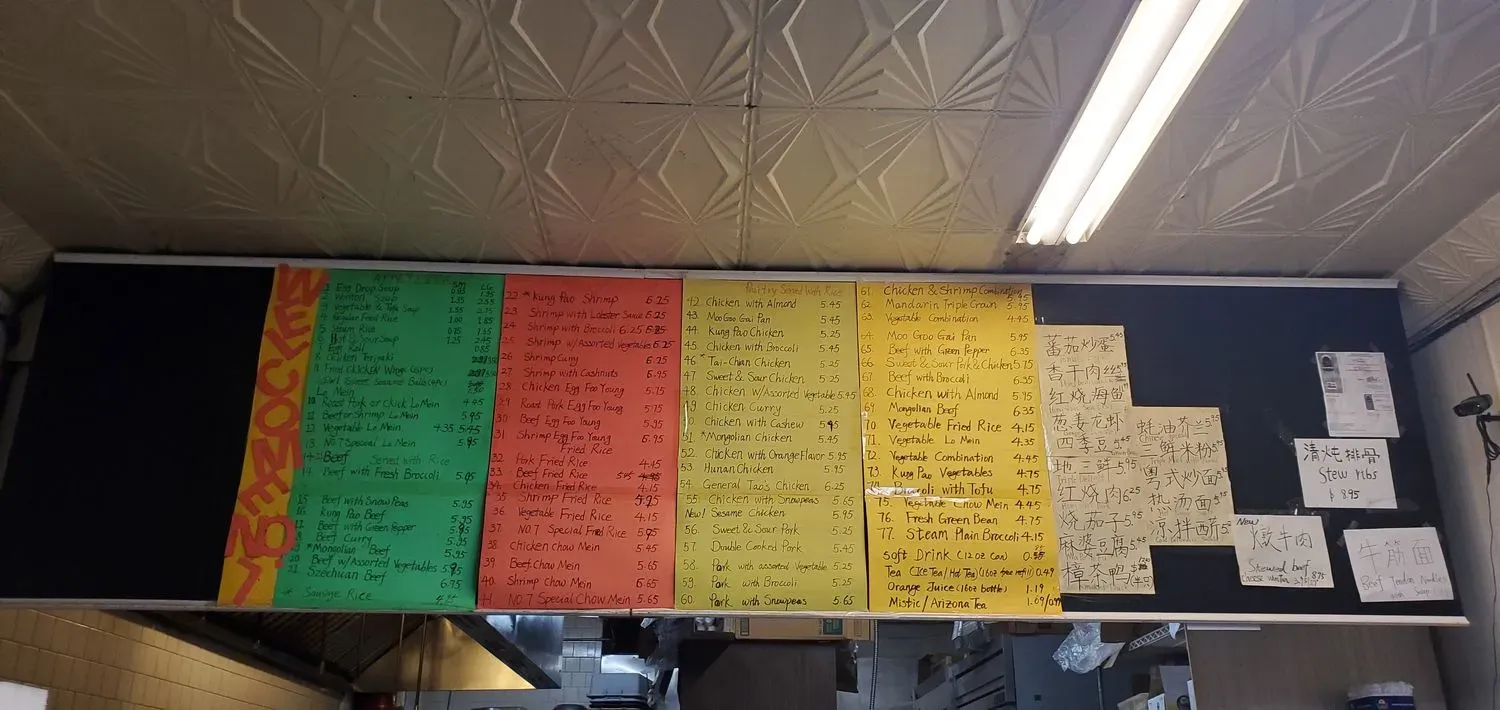 WELCOME TO NO. 1
Egg Drop Soup
2 Wonton Soup 1.35
3 Vegetable & Tofu Soup
4 Regular Fried Rice 1.00 1.85
5 Steam Rice
6 Hot & Sour Soup 1.25
Egg Roll 0.85
8 Chicken Teriyaki
9 Fried Chicken Wings
Lo Mein
10 Roast Pork or Chick Lo Mein 4.45
11 Beef or Shrimp Lo Mein 5.45
12 Vegetable Lo Mein 4.35
13 No.7 Special Lo Mein
Beef Served with Rice
14 Beef with Fresh Broccoli
15 Beef with Snow Peas 5.95
16 Kung Pao Beef 5.95
17 Beef with Green Pepper
18 Beef Curry
19 *Mongolian Beef 5.95
20 Beef w/Assorted Vegetables
21 Szechuan Beef 6.75
* Sausage Rice
22 *Kung Pao Shrimp 6.25
23 Shrimp with Lobster Sauce 6.25
24 Shrimp with Broccoli 6.25
25 Shrimp w/Assorted Vegetables 6.25
26 Shrimp Curry
27 Shrimp with Cashnuts 6.95
28 Chicken Egg Foo Young 5.75
29 Roast Pork Egg Foo Young 5.75
30 Beef Egg Foo Young
31 Shrimp Egg Foo Young 6.95
Fried Rice
32 Pork Fried Rice 4.15
33 Beef Fried Rice
34 Chicken Fried Rice 4.15
35 Shrimp Fried Rice
36 Vegetable Fried Rice 4.15
37 NO.7 Special Fried Rice
38 Chicken Chow Mein 5.45
39 Beef Chow Mein 5.65
40 Shrimp Chow Mein 5.65
41 NO.7 Special Chow Mein 5.65
Served with Rice
42 Chicken with Almond 5.45
43 Moo Goo Gai Pan 5.45
44 Kung Pao Chicken 5.25
45 Chicken with Broccoli 5.45
46 * Tai-Chian Chicken 5.45
47 Sweet & Sour Chicken 5.25
48 Chicken w/Assorted Vegetable 5.45
49 Chicken Curry 5.25
50 Chicken with Cashew
51 *Mongolian Chicken 5.45
52. Chicken with Orange Flavor 5.95
53. Hunan Chicken 5.95
54. General Tao's Chicken 6.25
55 Chicken with Snowpeas 5.65
New! Sesame Chicken 5.95
56. Sweet & Sour Pork 5.25
57. Double Cooked Pork 5.45
58. Pork with assorted Vegetable 5.25
59. Pork with Broccoli 5.25
60. Pork with Snowpeas 5.65
61. Chicken & Shrimp Combination
62. Mandarin Triple Crown 5.95
63. Vegetable Combination 4.45
64. Moo Goo Gai Pan 5.95
65. Beef with Green Pepper 6.35
66. Sweet & Sour Pork & Chicken 5.75
67. Beef with Broccoli 6.35
68. Chicken with Almond 5.95
69 Mongolian Beef 6.35
70 Vegetable Fried Rice 4.15
71. Vegetable Lo Mein 4.35
72. Vegetable Combination 4.45
73. Kung Pao Vegetables 4.75
74. Broccoli with Tofu 4.75
75. Vegetable Chow Mein 4.45
76. Fresh Green Bean 4.75
77. Steam Plain Broccoli 4.15
Soft Drink (12 oz can)
Tea (Ice Tea/Hot Tea) (16oz free refill) 0.49
Orange Juice (16oz bottle) 1.19
Mistic/Arizona Tea 1.09/0.99
蕃茄炒蛋 5.45
香干肉丝
红烧海鱼
葱姜龙虾
四季豆 5.45
地三鲜 5.95
红烧肉 6.25
烧茄子 5.95
麻婆豆腐
樟茶鸭
蚝油芥兰 5.95
三鲜米粉
粤式炒面
热汤面
凉拌西芹
清炖排骨
Stew ribs
$ 8.95
New
燉牛肉
Stewed beef
牛筋面
Beef Tendon Noodles
with Soup